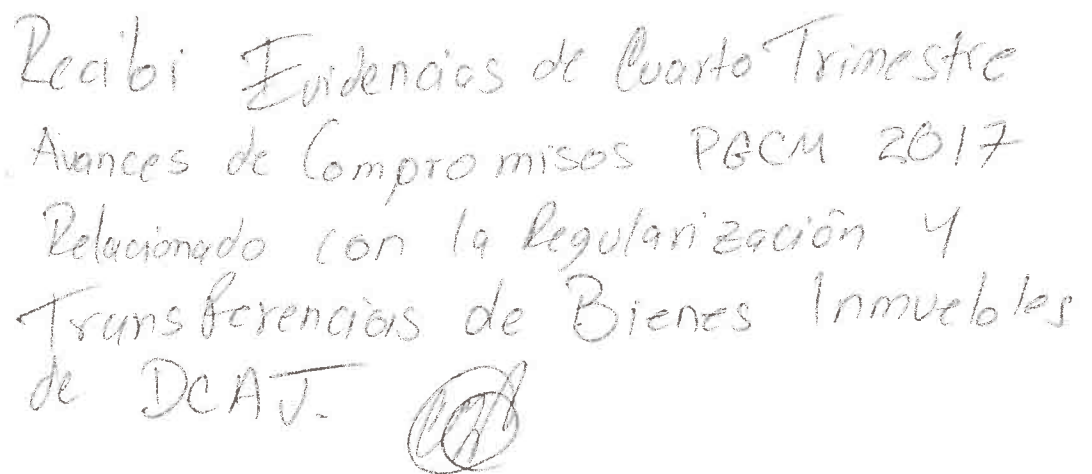 Recibi Evidencias de Cuarto Trimestre
Avances de Compromisos PGCM 2017
Relacionado con la Regularización y
Transferencias de Bienes Inmuebles
de DCAJ.